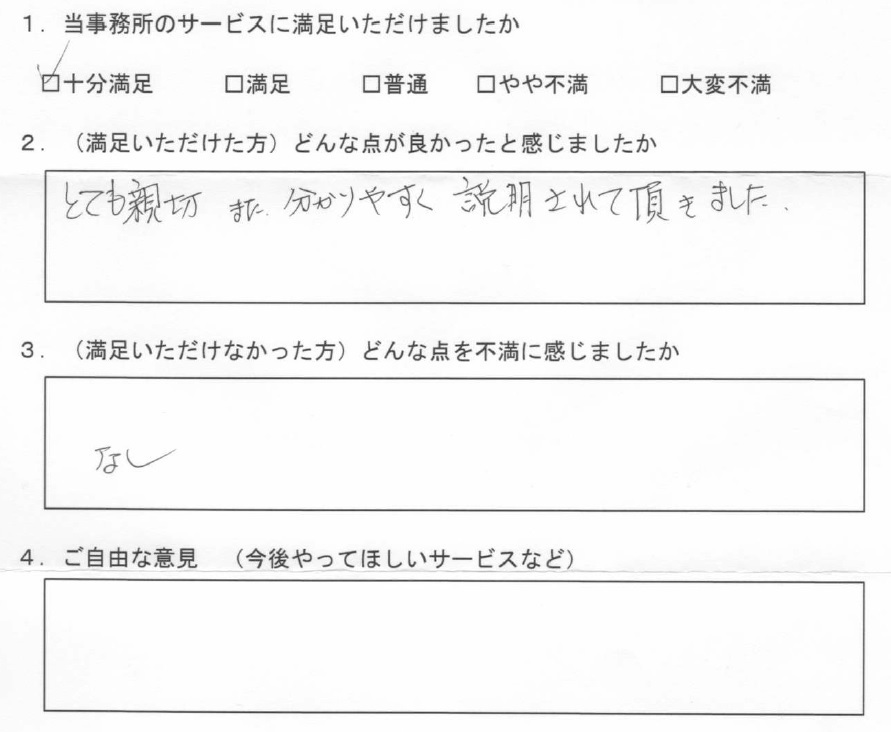 1．当事務所のサービスに満足いただけましたか
☑十分満足　□満足　□普通　□やや不満　□大変不満
2．（満足いただけた方）どんな点が良かったと感じましたか
とても親切 また. 分かりやすく 説明されて頂きました.
3．（満足いただけなかった方）どんな点を不満に感じましたか
なし
4．ご自由な意見　（今後やってほしいサービスなど）